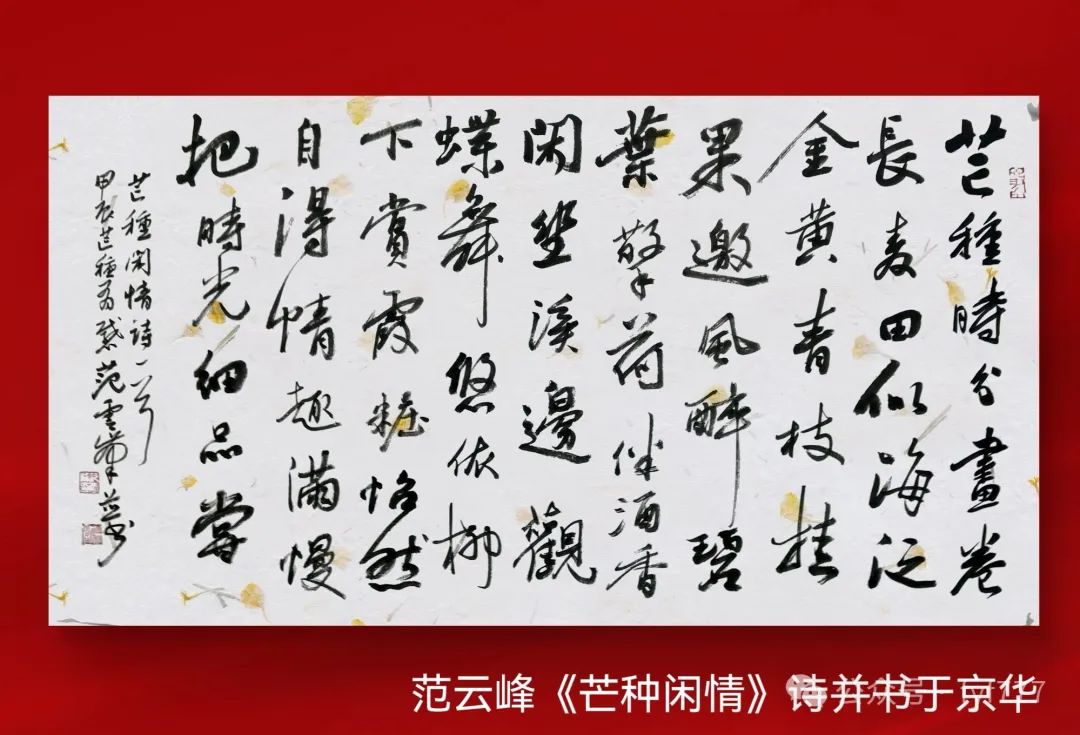 芒種時分畫卷
長麦田似海泛
金黄青枝挂
果邀風醉碧
葉擎荷伴酒香
閑坐溪邊觀
蝶舞悠依柳
下賞霞糚怡然
自得情趣滿慢
把時光细品嘗
芒種閑情诗一首
甲辰芒種有感范雲峰並书
范云峰《芒种闲情》诗并书于京华
公众号